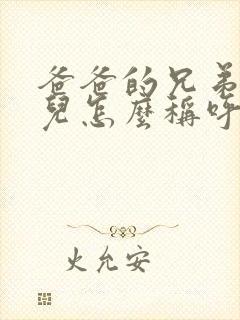 爸爸的兄弟
兒怎麼稱呼
火允安